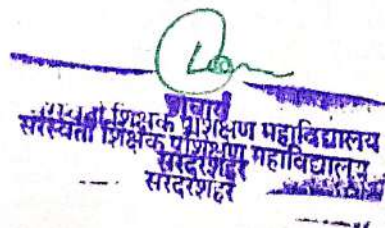 प्राचार्य
सरस्वती शिक्षक प्रशिक्षण महाविद्यालय
सरस्वती शिक्षक प्रशिक्षण महाविद्यालय
सरदारशहर
सरदारशहर